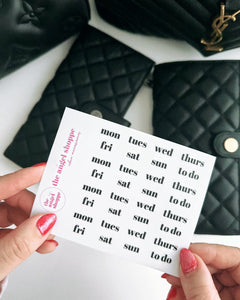 the angel shoppe
mon tues wed thurs
fri sat sun to do
mon tues wed thurs
fri sat sun to do
mon tues wed thurs
fri sat sun to do
mon tues wed thurs
fri sat sun to do
the
angel
shoppe